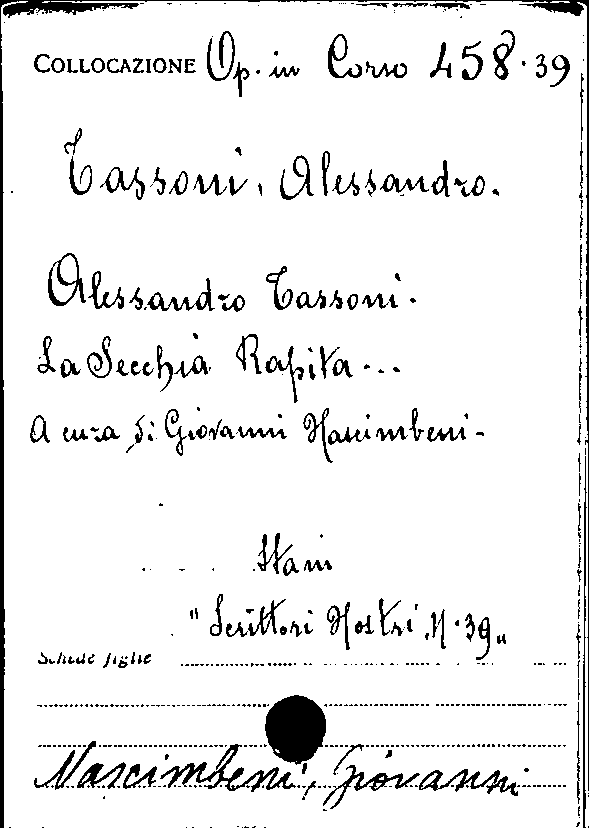 COLLOCAZIONE Op. in Corso 458.39
Tassoni, Alessandro.
Alessandro Tassoni.
La Secchia Rapita...
A cura di Giovanni Nascimbeni-
"Scrittori Nostri N. 39"
Schede figlie
Nascimbeni, Giovanni